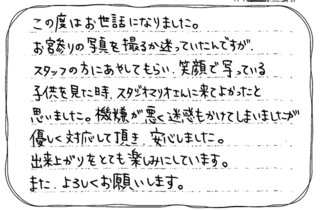 この度はお世話になりました。
お宮参りの写真を撮るか迷っていたんですが、
スタッフの方にあやしてもらい、笑顔で写っている
子供を見た時、スタジオマリオさんに来てよかったと
思いました。機嫌が悪く迷惑もかけてしまいましたが
優しく対応して頂き、安心しました。
出来上がりをとても楽しみにしています。
また、よろしくお願いします。